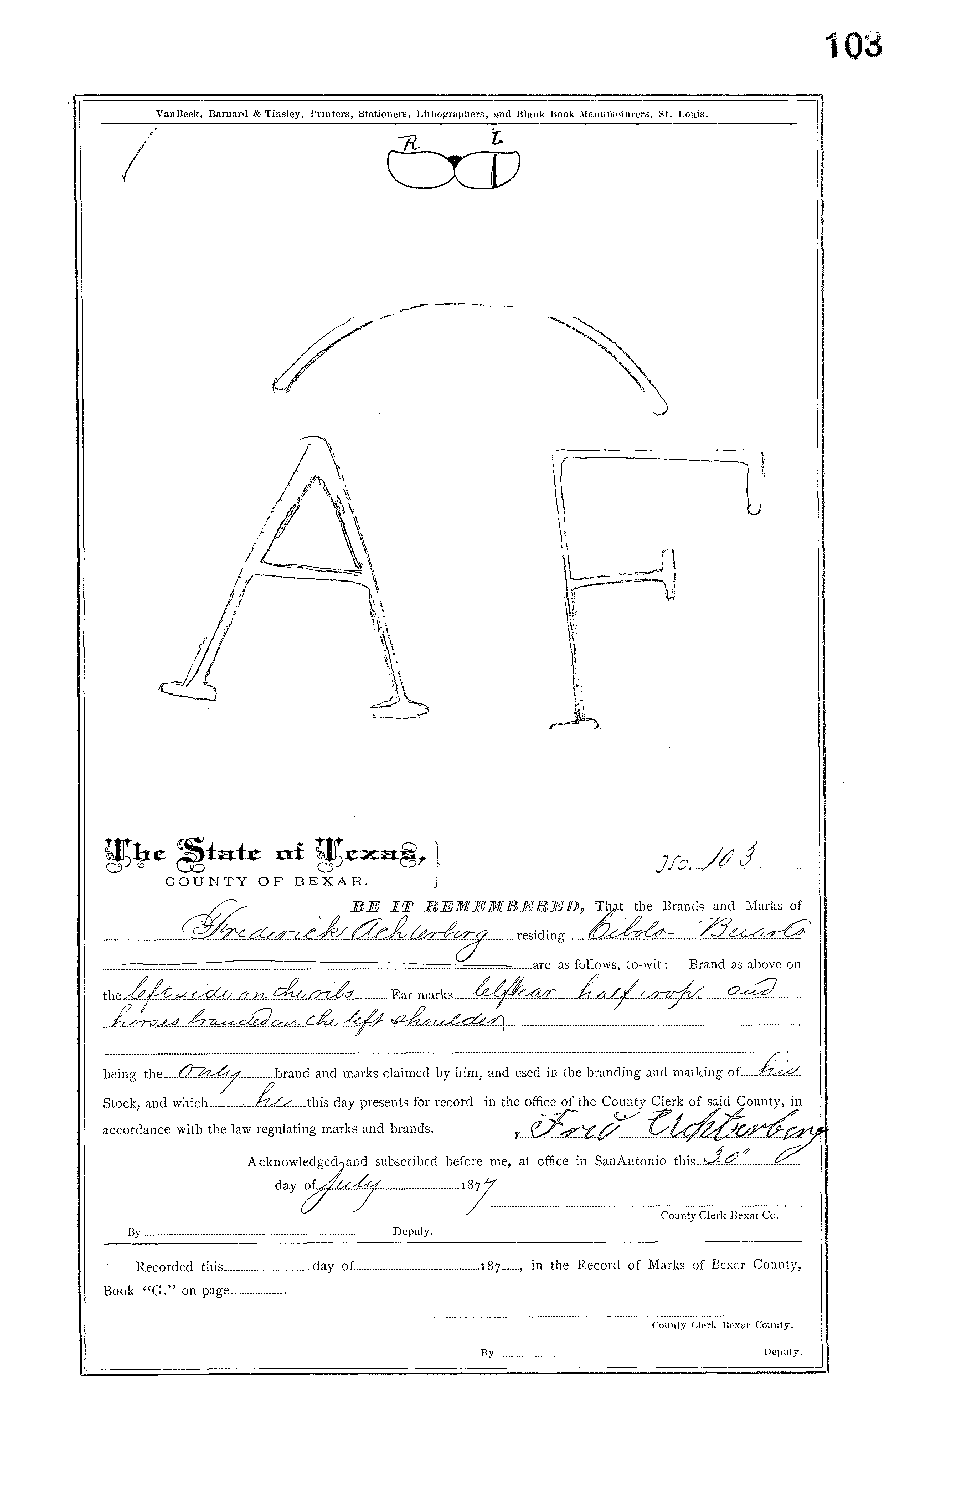 103
VanBeek, Barnard & Tinsley, Printers, Stationers, Lithographers, and Blank Book Manufacturers, St. Louis.
R L
A F
The State of Texas,
COUNTY OF BEXAR.
No. 103
BE IT REMEMBERED, That the Brands and Marks of
Frederick Achterberg residing Cibolo-
are as follows, to-wit: Brand as above on
the left side on the ribs Ear marks left ear half crop and
horses branded on the left shoulder
being the only brand and marks claimed by him, and used in the branding and marking of his
Stock, and which he this day presents for record in the office of the County Clerk of said County, in
accordance with the law regulating marks and brands. Fred Achterberg
Acknowledged and subscribed before me, at office in SanAntonio this 30"
day of July 1877
County Clerk Bexar Co.
By Deputy.
Recorded this day of 187 , in the Record of Marks of Bexar County,
Book "G." on page
County Clerk Bexar County.
By Deputy.